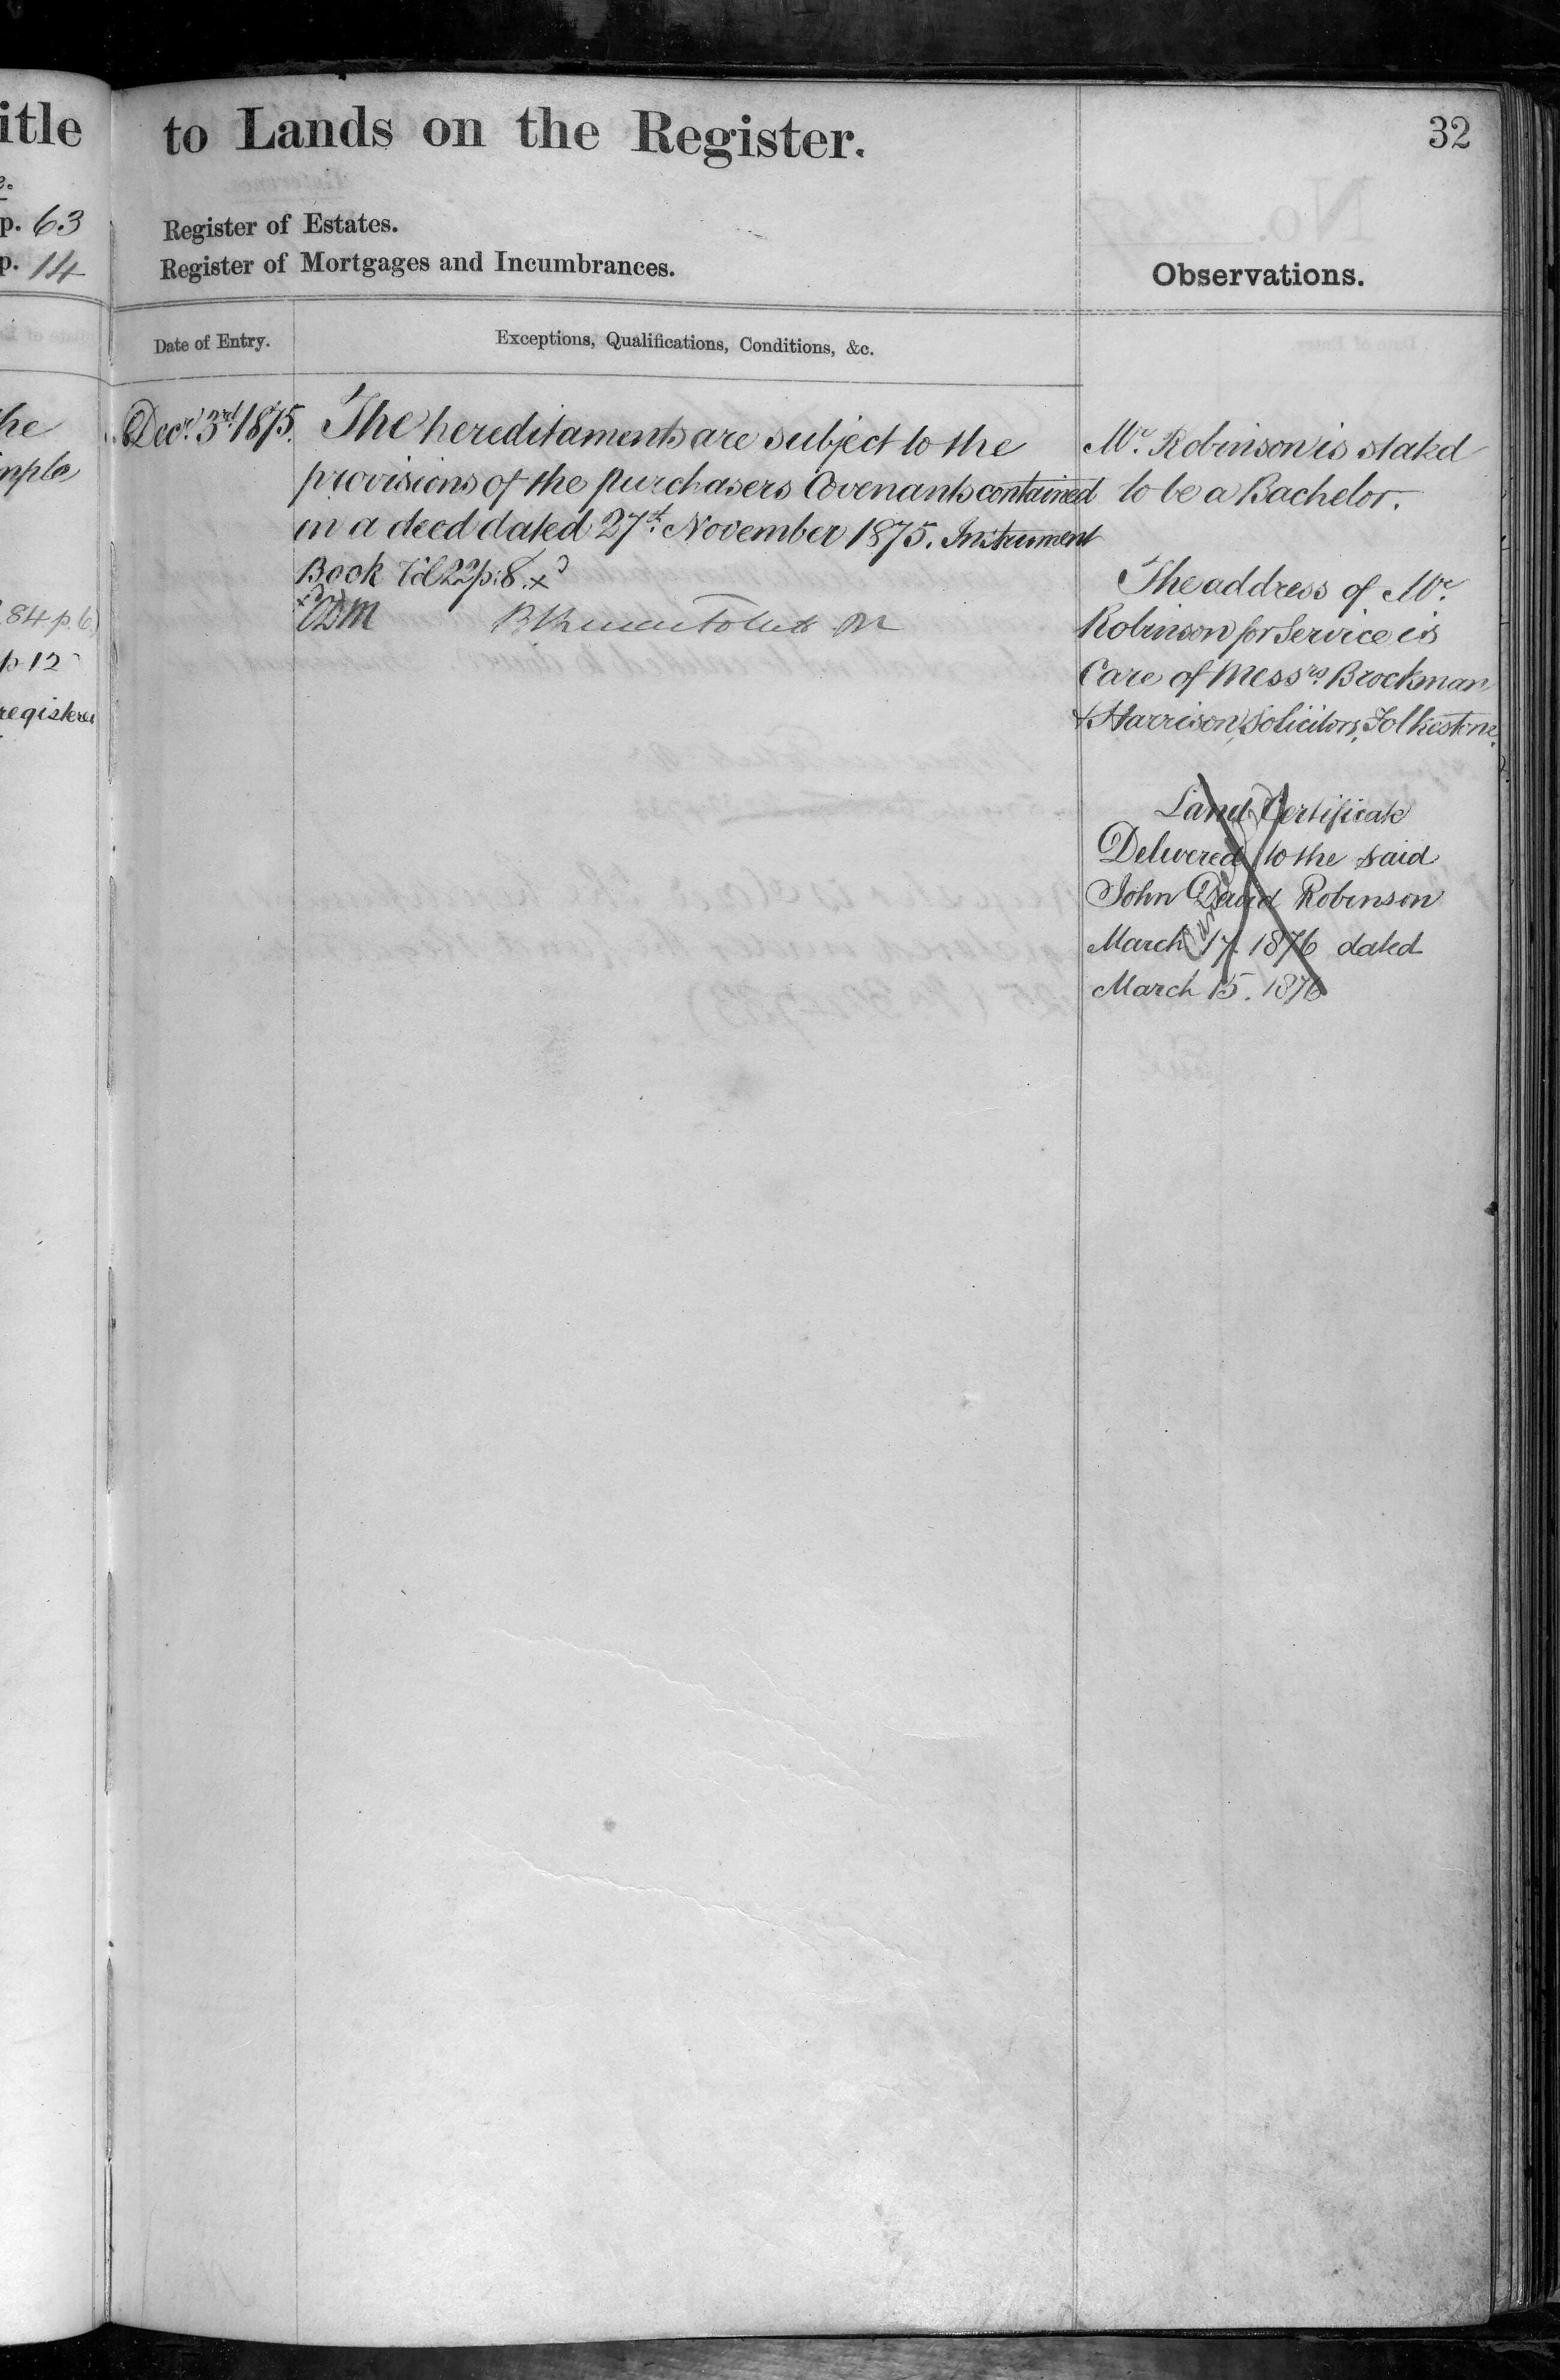 itle
p. 63
p. 14
he
84 p. 6)
p. 12
to Lands on the Register.
32
Register of Estates.
Register of Mortgages and Incumbrances.
Observations.
Date of Entry.
Exceptions, Qualifications, Conditions, &c.
Decr. 3rd 1875.
The hereditaments are subject to the
provisions of the purchasers Covenants contained
in a deed dated 27th November 1875. Instrument
Book Vol 22 p: 8. x
Mr. Robinson is stated
to be a Bachelor.
The address of Mr.
Robinson for Service is
Care of Messrs. Brockman
& Harrison, Solicitors, Folkestone.
Land Certificate
Delivered to the said
John David Robinson
March 17. 1876 dated
March 15. 1876